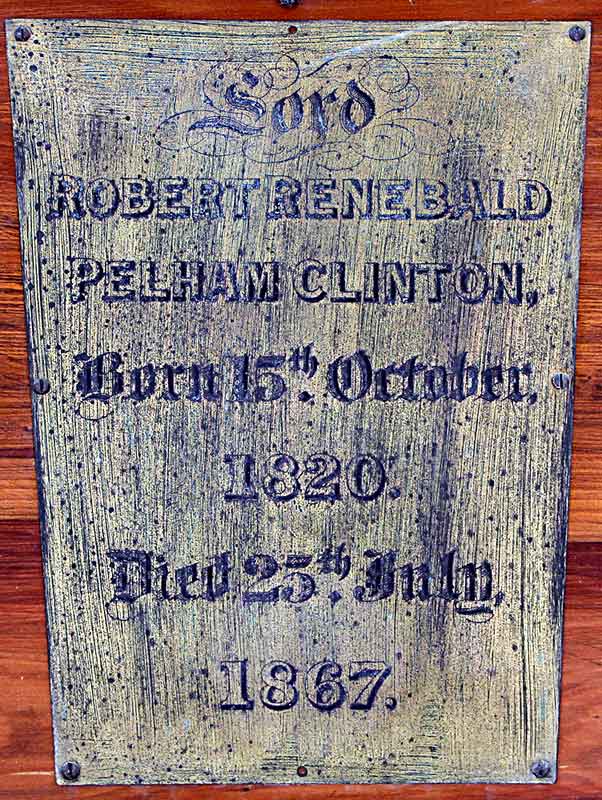 Lord
ROBERT RENEBALD
PELHAM CLINTON,
Born 15th. October,
1820.
Died 25th. July,
1867.